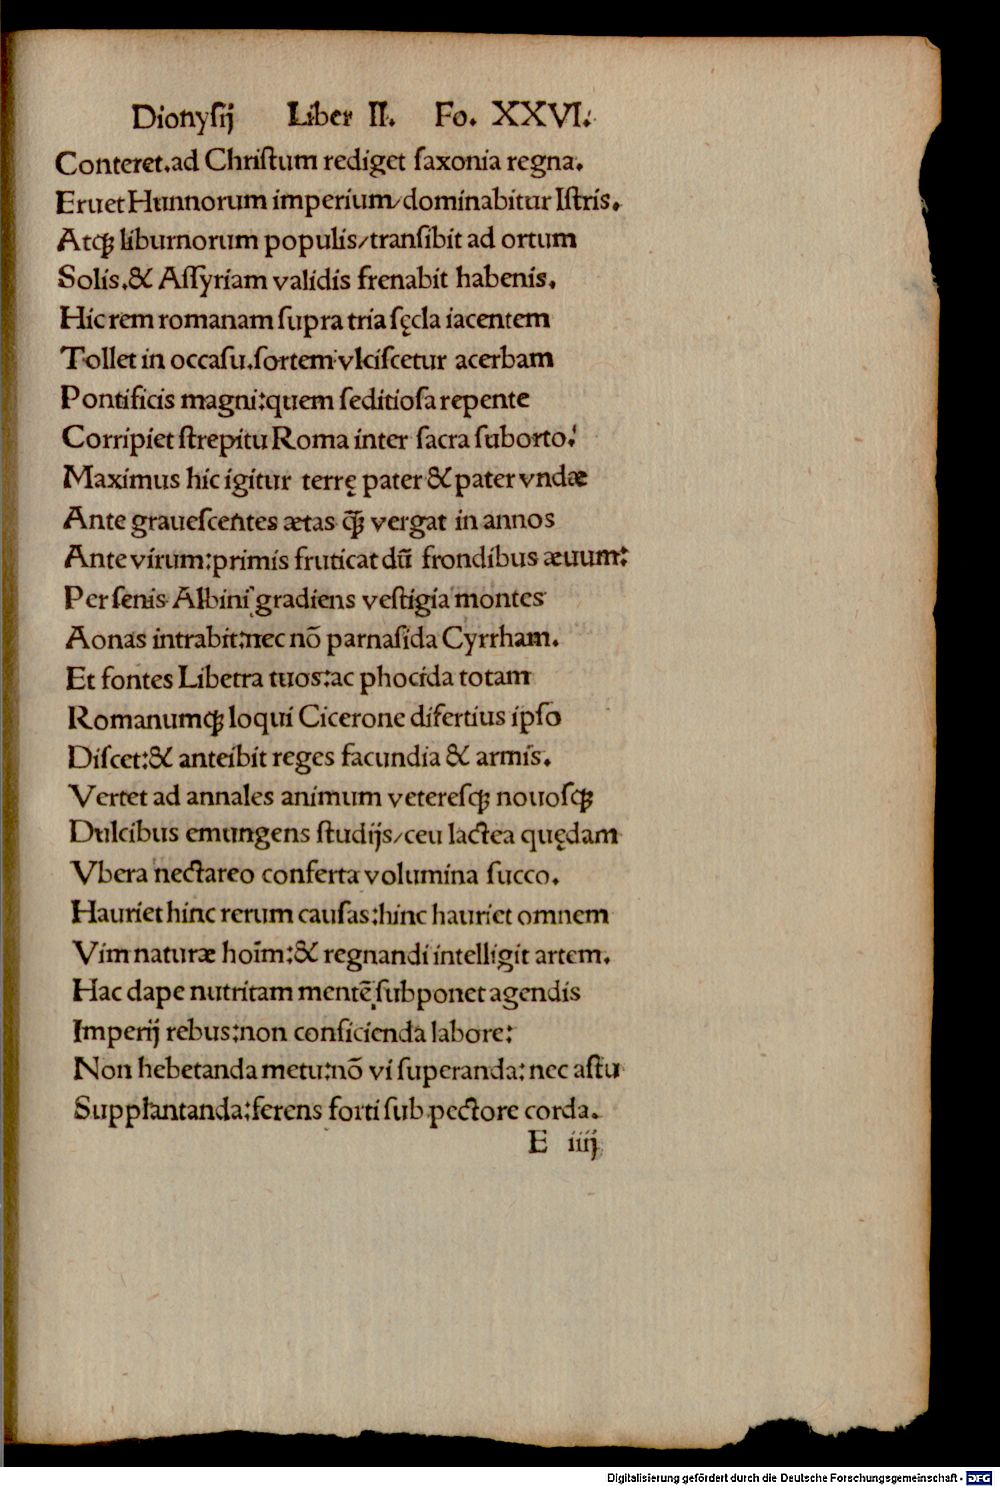 Dionyſij Liber II. Fo. XXVI.
Conteret.ad Chriſtum rediget ſaxonia regna.
Eruet Hunnorum imperium/dominabitur Iſtris.
Atqꝫ liburnorum populis/tranſibit ad ortum
Solis.& Aſſyriam validis frenabit habenis.
Hic rem romanam ſupra tria ſęcla iacentem
Tollet in occaſu.ſortem vlciſcetur acerbam
Pontificis magni:quem ſeditioſa repente
Corripiet ſtrepitu Roma inter ſacra ſuborto.
Maximus hic igitur terrę pater & pater vndæ
Ante graueſcentes ætas qꝫ̃ vergat in annos
Ante virum:primis fruticat dũ frondibus æuum:
Per ſenis Albini gradiens veſtigia montes
Aonas intrabit:nec nõ parnaſida Cyrrham.
Et fontes Libetra tuos:ac phocida totam
Romanumqꝫ loqui Cicerone diſertius ipſo
Diſcet:& anteibit reges facundia & armis.
Vertet ad annales animum ꝟetereſqꝫ nouoſqꝫ
Dulcibus emungens ſtudijs/ceu lactea quędam
Vbera nectareo conferta volumina ſucco.
Hauriet hinc rerum cauſas:hinc hauriet omnem
Vim naturæ hoĩm:& regnandi intelligit artem.
Hac dape nutritam mentẽ ſubponet agendis
Imperij rebus:non conficienda labore:
Non hebetanda metu:nõ vi ſuperanda: nec aſtu
Supplantanda:ferens forti ſub pectore corda.
E iiij
Digitalisierung gefördert durch die Deutsche Forschungsgemeinschaft - DFG